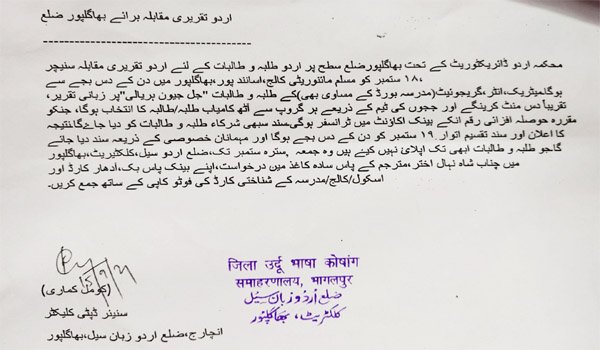 اردو تقریری مقابلہ برائے بھاگلپور ضلع
محکمہ اردو ڈائریکٹوریٹ کے تحت بھاگلپورضلع سطح پر اردو طلبہ و طالبات کے لئے اردو تقریری مقابلہ سنیچر
۱۸، ستمبر کو مسلم مائنوریٹی کالج،اسانند پور،بھاگلپور میں دن کے دس بجے سے
ہوگا۔میٹریک،انٹر،گریجونیٹ(مدرسہ بورڈ کے مساوی بھی)کے طلبہ و طالبات "جل جیون ہریالی"پر زبانی تقریر،
تقریباً دس منٹ کرینگے اور ججوں کی ٹیم کے ذریعے ہر گروپ سے آٹھ کامیاب طلبہ/طالبہ کا انتخاب ہوگا، جنکو
مقررہ حوصلہ افزائی رقم انکے بینک اکاونٹ میں ٹرانسفر ہوگی۔سند سبھی شرکاء طلبہ و طالبات کو دیا جاےگا۔نتیجہ
کا اعلان اور سند تقسیم اتوار ۱۹ ستمبر کو دن کے دس بجے ہوگا اور مہمانان خصوصی کے ذریعہ سند دیا جائے
گا۔جو طلبہ و طالبات ابھی تک اپلائ نہیں کیئے ہیں وہ جمعہ ،سترہ ستمبر تک،ضلع اردو سیل،کلکٹریٹ،بھاگلپور
میں جناب شاہ نہال اختر،مترجم کے پاس سادہ کاغذ میں درخواست،اپنے بینک پاس بک،ادھار کارڈ اور
اسکول/کالج/مدرسہ کے شناختی کارڈ کی فوٹو کاپی کے ساتھ جمع کریں۔
जिला उर्दू भाषा कोषांग
समाहरणालय, भागलपुर
ضلع اُردو زبان سیل
کلکٹریٹ، بھاگلپور
(کومل کماری)
سنیئر ڈپٹی کلیکٹر
انچارج،ضلع اردو زبان سیل،بھاگلپور